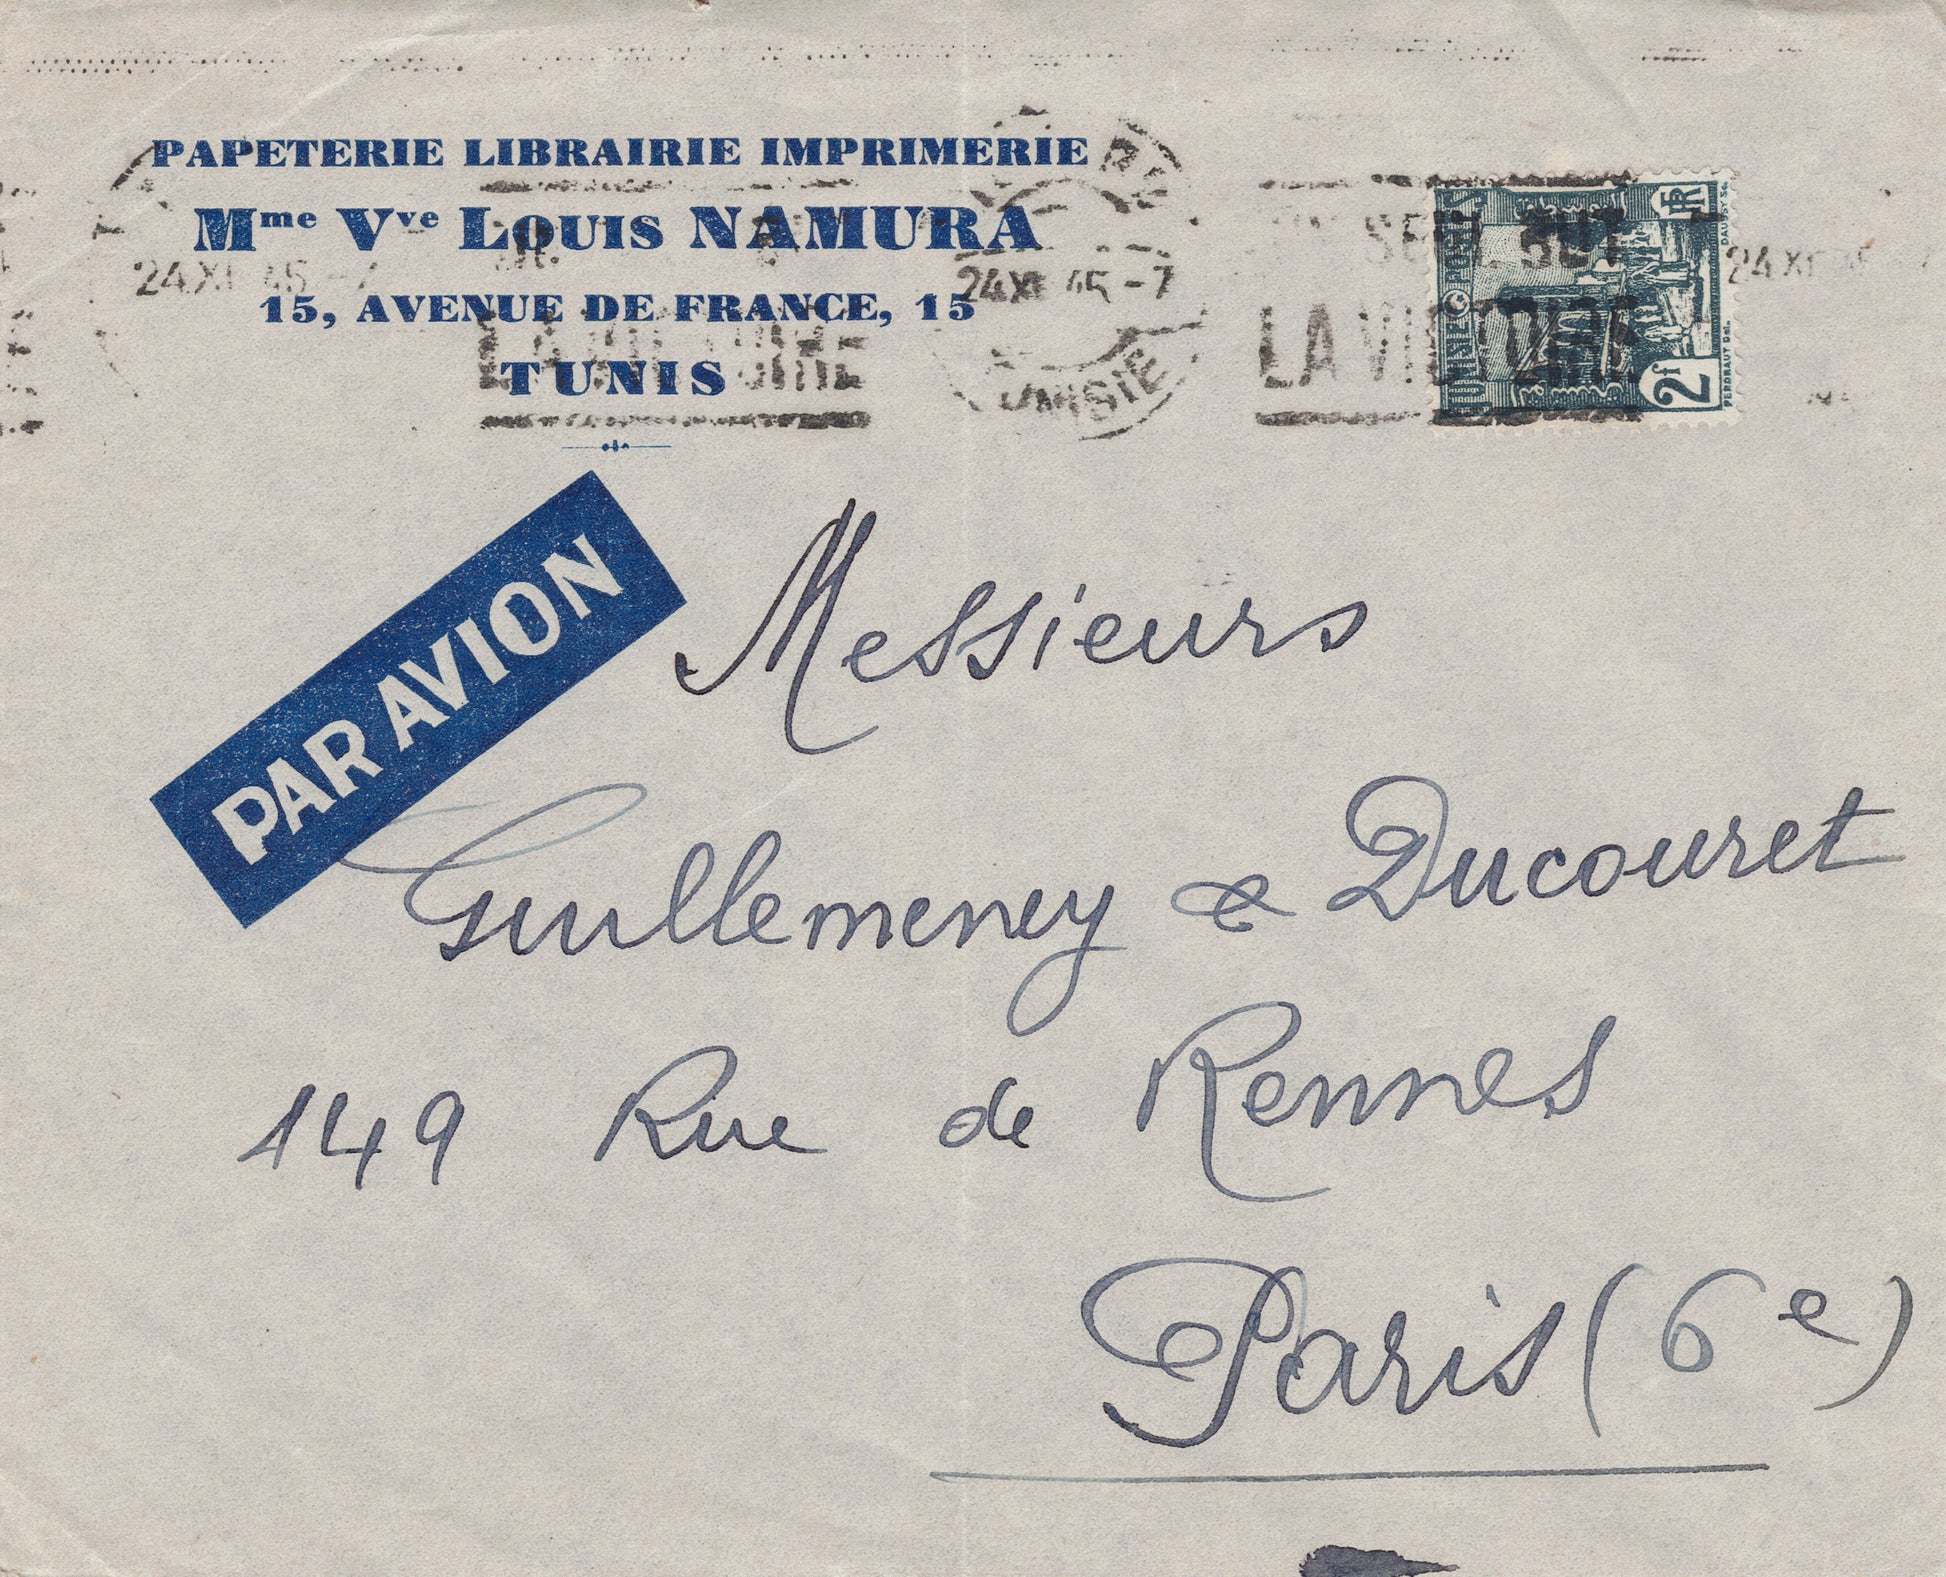 PAPETERIE LIBRAIRIE IMPRIMERIE
Mme Vve LOUIS NAMURA
15, AVENUE DE FRANCE, 15
TUNIS
24 XI 45 - 7
24 XI 45 - 7
TUNISIE
SEUL BUT
LA VICTOIRE
24 XI 45
TUNISIE POSTES
RF
2f
PAR AVION
Messieurs
Guillemeney & Ducouret
149 Rue de Rennes
Paris (6e)